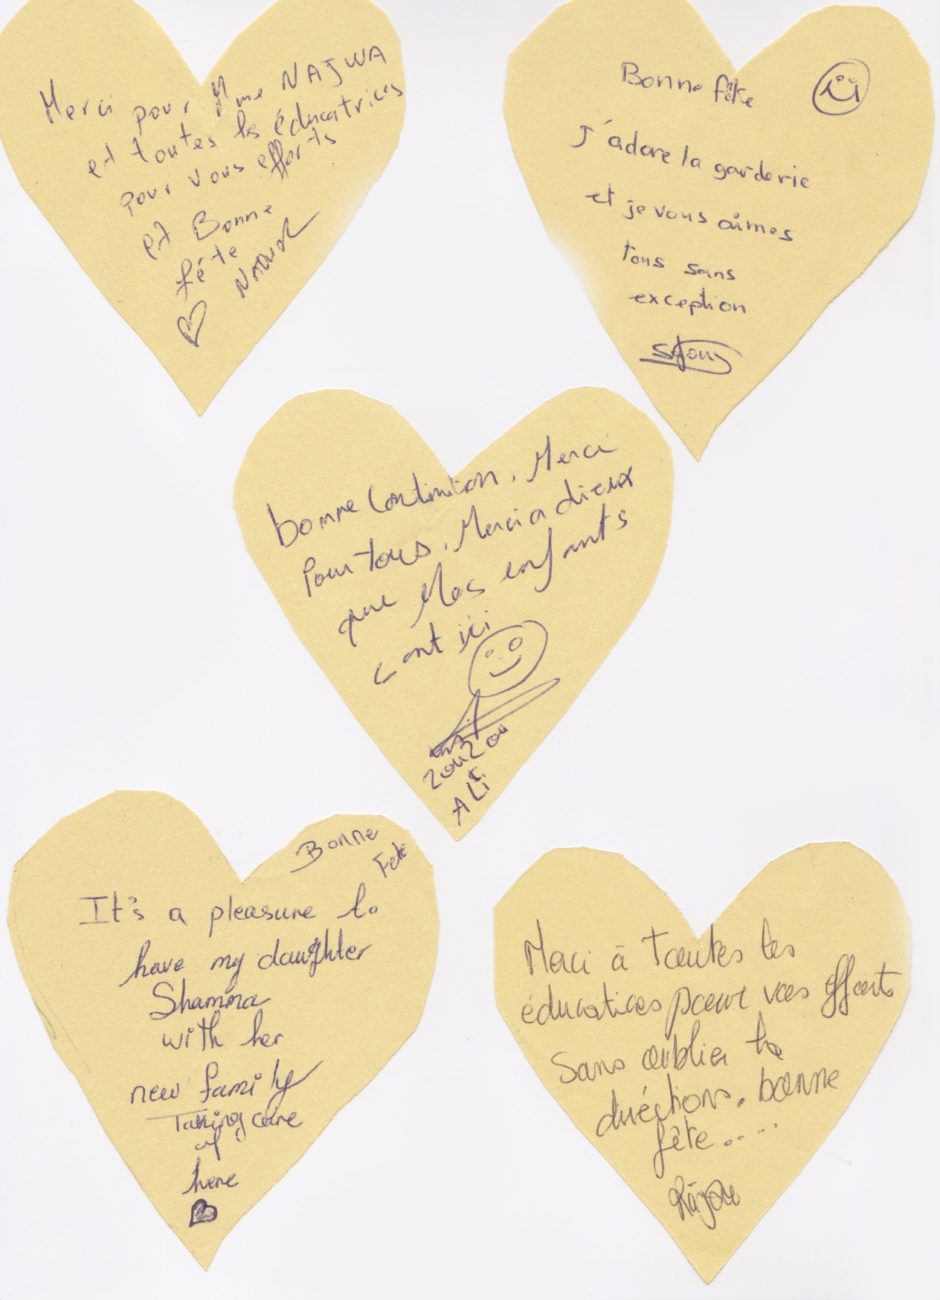 Merci pour Mme NAJWA
et toutes les éducatrices
pour vous efforts
et Bonne
fête
Bonne fête
J'adore la garderie
et je vous aimes
tous sans
exception
bonne Continution. Merci
Pour tous. Merci a dieux
que Mes enfants
sont ici
ZouZou
ALi
Bonne
Fete
It's a pleasure to
have my daughter
Shamma
with her
new family
Taking care
of
here
Merci à Toutes les
éducatices pour vos efforts
Sans oublier la
diréctions, bonne
fête.....